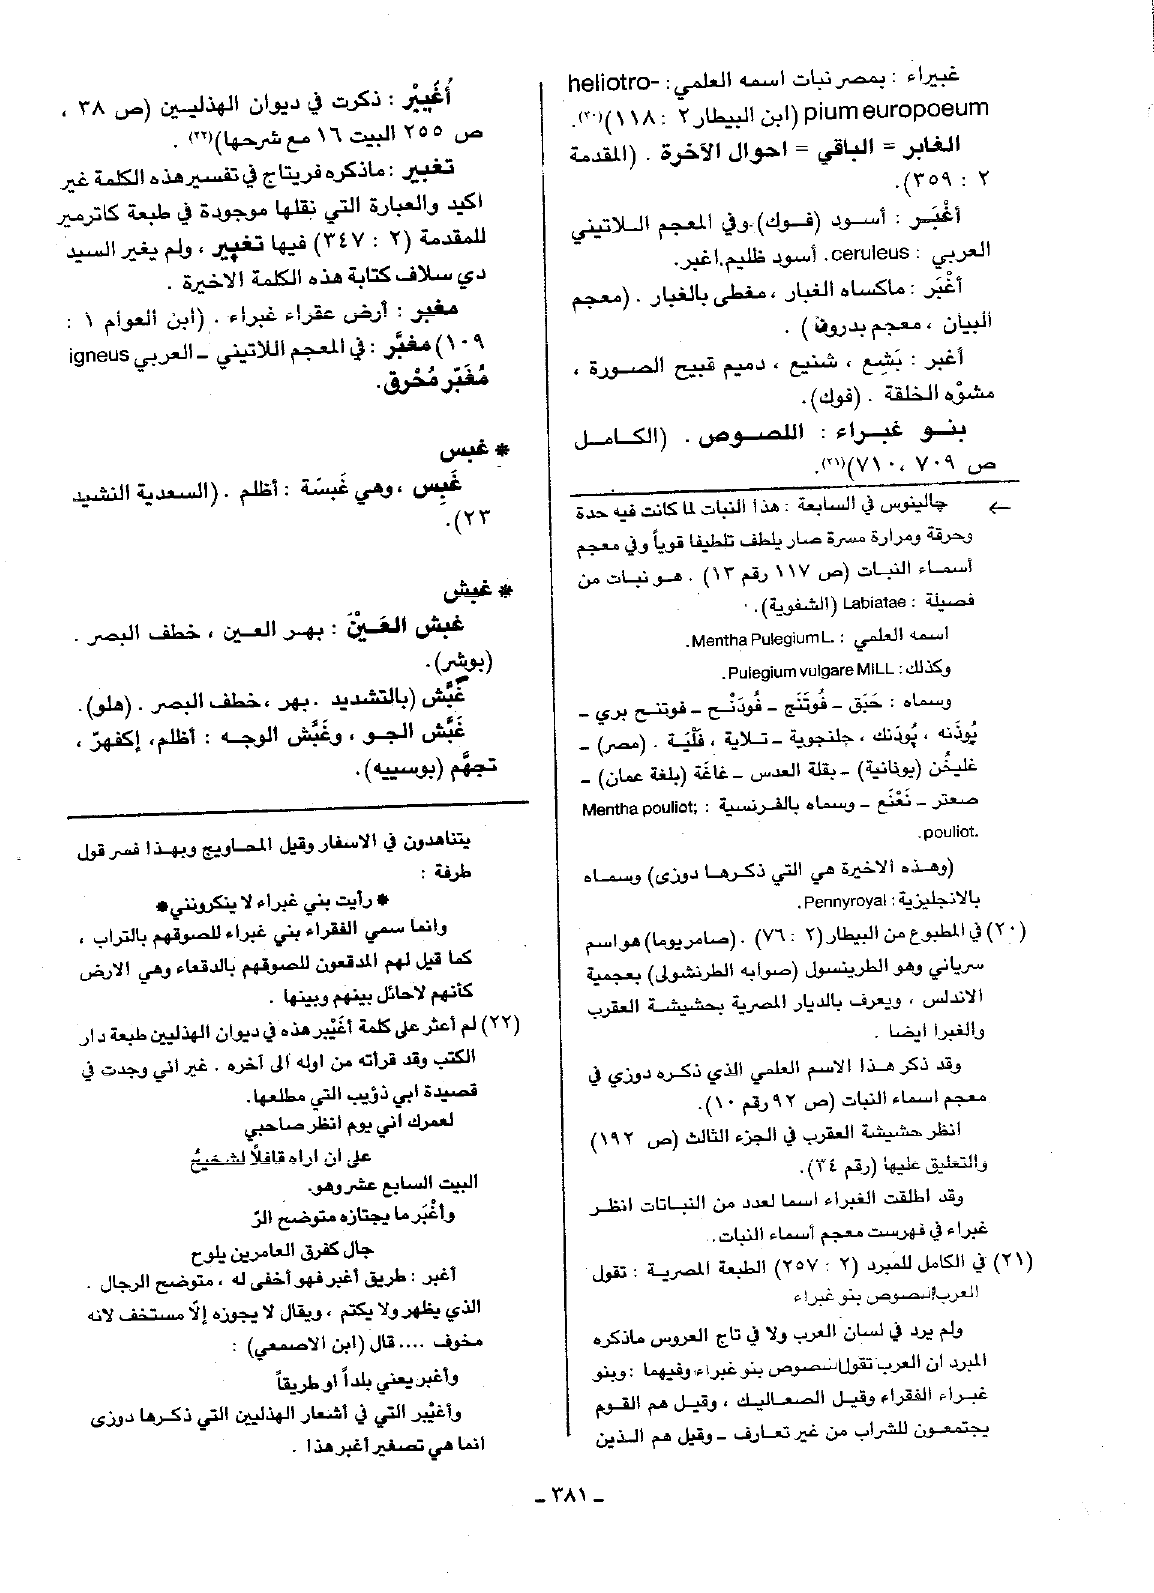 غبيراء : بمصر نبات اسمه العلمي: heliotro-
pium europoeum (ابن البيطار ٢ : ١١٨)(٢٠).
الغابر = الباقي = احوال الآخرة . (المقدمة
٢ : ٣٥٩).
أغْبَر : أسود (فوك) وفي المعجم اللاتيني
العربي : ceruleus. أسود ظليم.اغبر.
أغْبَر : ماكساه الغبار ، مغطى بالغبار . (معجم
البيان ، معجم بدرون) .
أغبر : بَشِع ، شنيع ، دميم قبيح الصورة ،
مشوّه الخلقة . (فوك).
بنو غبراء : اللصوص . (الكامل
ص ٧٠٩ ، ٧١٠)(٢١).
← جالينوس في السابعة : هذا النبات لما كانت فيه حدة
وحرقة ومرارة مسرة صار يلطف تلطيفا قوياً وفي معجم
أسماء النبات (ص ١١٧ رقم ١٣) . هو نبات من
فصيلة : Labiatae (الشفوية).
اسمه العلمي : Mentha Pulegium L.
وكذلك: Pulegium vulgare MiLL.
وسماه : حَبَق – فُوتَنَج – فُودَنْج – فوتنج بري –
يُوذَنه ، يُوذنك ، جلنجوية – تلاية ، فَلْيَة . (مصر) –
غليخُن (يونانية) – بقلة العدس – غاغَة (بلغة عمان) –
صعتر – نَعْنَع – وسماه بالفرنسية : Mentha pouliot;
pouliot.
(وهذه الاخيرة هي التي ذكرها دوزى) وسماه
بالانجليزية : Pennyroyal.
(٢٠) في المطبوع من البيطار (٢ : ٧٦) . (صامريوما) هو اسم
سرياني وهو الطرينسول (صوابه الطرنشولى) بعجمية
الاندلس ، ويعرف بالديار المصرية بحشيشة العقرب
والغبرا ايضا .
وقد ذكر هذا الاسم العلمي الذي ذكره دوزي في
معجم اسماء النبات (ص ٩٢ رقم ١٠).
انظر حشيشة العقرب في الجزء الثالث (ص ١٩٢)
والتعليق عليها (رقم ٣٤).
وقد اطلقت الغبراء اسما لعدد من النباتات انظر
غبراء في فهرست معجم أسماء النبات.
(٢١) في الكامل للمبرد (٢ : ٢٥٧) الطبعة المصرية : تقول
العرب للصوص بنو غبراء
ولم يرد في لسان العرب ولا في تاج العروس ماذكره
المبرد ان العرب تقول للصوص بنو غبراء وفيهما : وبنو
غبراء الفقراء وقيل الصعاليك ، وقيل هم القوم
يجتمعون للشراب من غير تعارف – وقيل هم الذين
أُغَيْبِرْ : ذكرت في ديوان الهذليين (ص ٣٨ ،
ص ٢٥٥ البيت ١٦ مع شرحها)(٢٢) .
تغبير : ماذكره فريتاج في تفسير هذه الكلمة غير
اكيد والعبارة التي نقلها موجودة في طبعة كاترمير
للمقدمة (٢ : ٣٤٧) فيها تغيير ، ولم يغير السيد
دي سلاف كتابة هذه الكلمة الاخيرة .
مغبر : أرض عقراء غبراء . (ابن العوام ١ :
١٠٩) مغبَّر : في المعجم اللاتيني – العربي igneus
مُغَبّر مُحْرق.
* غبس
غَبِس ، وهي غَبِسَة : أظلم . (السعدية النشيد
٢٣).
* غبش
غبش العَيْنْ : بهر العين ، خطف البصر .
(بوشر).
غَبَّش (بالتشديد . بهر ، خطف البصر . (هلو).
غَبَّش الجو ، وغَبَّش الوجه : أظلم ، إكفهرّ ،
تجهَّم (بوسييه).
يتناهدون في الاسفار وقيل المحاويج وبهذا فسر قول
طرفة :
* رأيت بني غبراء لا ينكرونني *
وانما سمي الفقراء بني غبراء للصوقهم بالتراب ،
كما قيل لهم المدقعون للصوقهم بالدقعاء وهي الارض
كأنهم لاحائل بينهم وبينها .
(٢٢) لم أعثر على كلمة أغَيْبر هذه في ديوان الهذليين طبعة دار
الكتب وقد قرأته من اوله الى آخره . غير اني وجدت في
قصيدة ابي ذؤيب التي مطلعها.
لعمرك اني يوم انظر صاحبي
على ان اراه قافلاً لشحيحُ
البيت السابع عشر وهو.
وأغْبَر ما يجتازه متوضح الرّ
جال كفرق العامرين يلوح
أغبر : طريق أغبر فهو أخفى له ، متوضح الرجال .
الذي يظهر ولا يكتم ، ويقال لا يجوزه إلّا مستخف لانه
مخوف .... قال (ابن الاصمعي) :
وأغبر يعني بلداً او طريقاً
وأغيْبر التي في أشعار الهذليين التي ذكرها دوزى
انما هي تصغير أغبر هذا .
– ٣٨١ –